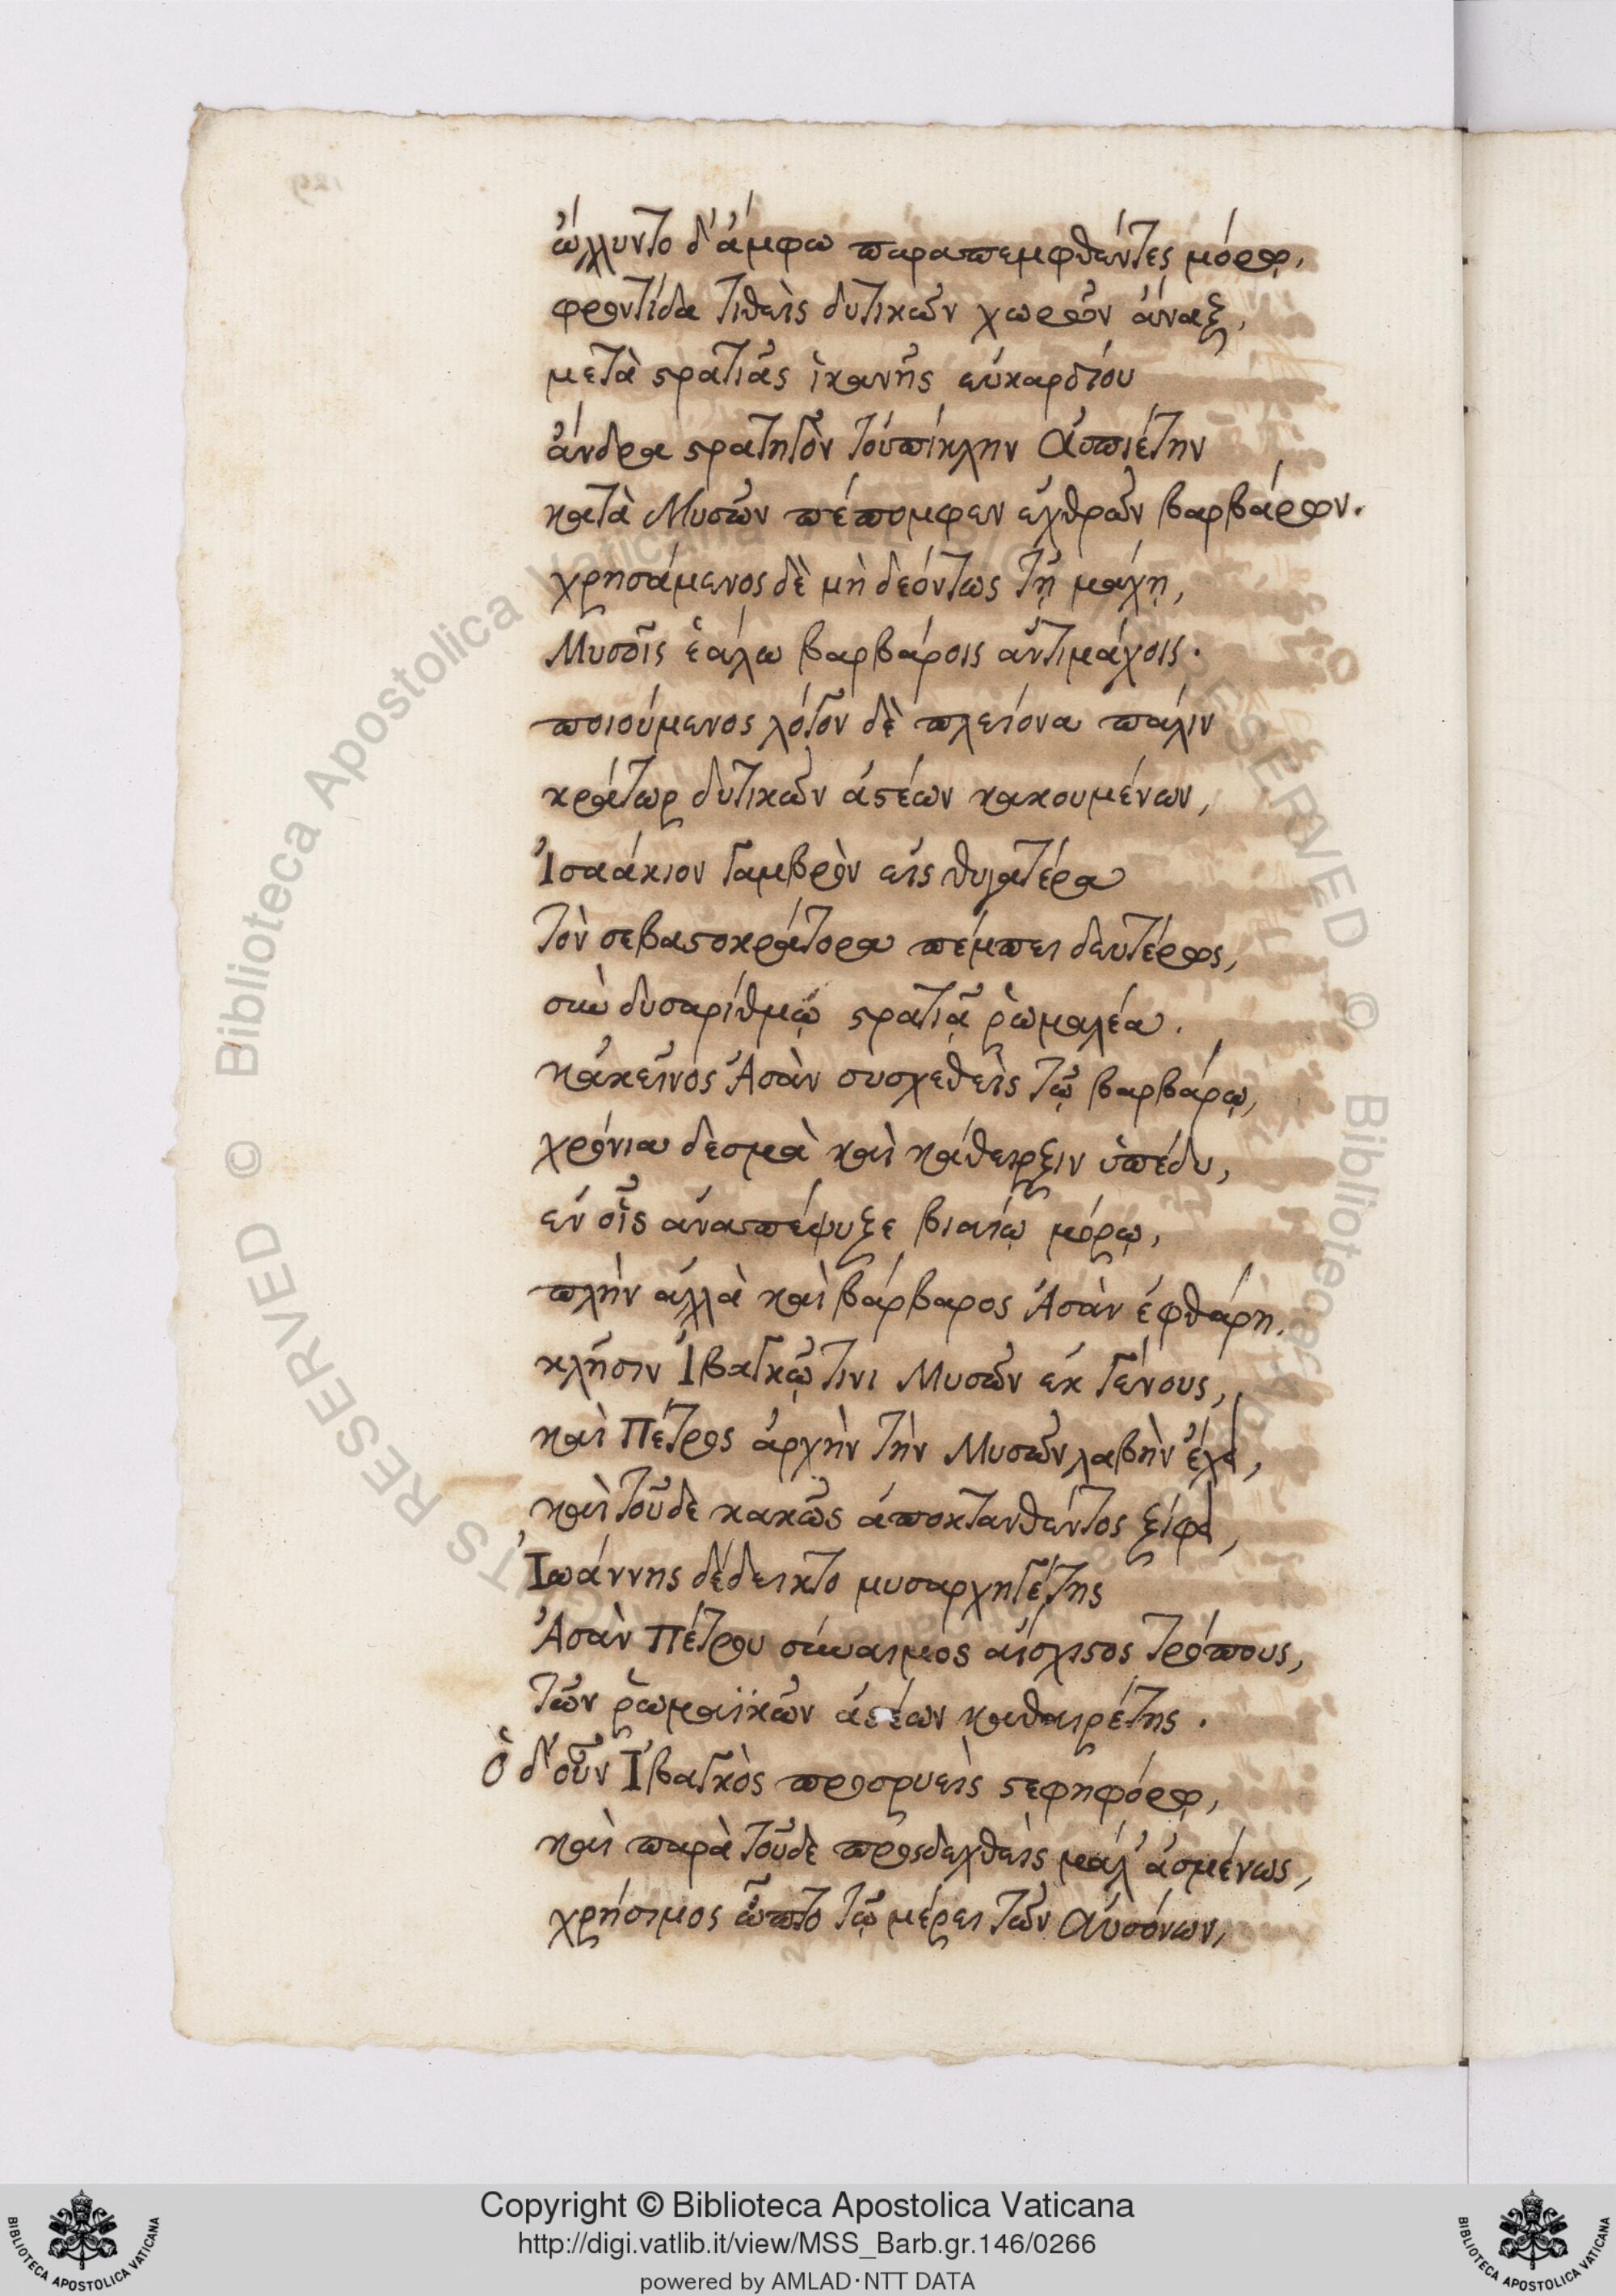 ὤλλυντο δ' ἄμφω παραπεμφθέντες μόρῳ,
φροντίδα τιθεὶς δυτικῶν χωρῶν ἄναξ,
μετὰ στρατιᾶς ἱκανῆς εὐκαρδίου
ἄνδρα στρατηγὸν τοὐπίκλην Ἀσπιέτην
κατὰ Μυσῶν πέπομφεν ἐχθρῶν βαρβάρων.
χρησάμενος δὲ μὴ δεόντως τῇ μάχῃ,
Μυσοῖς ἑάλω βαρβάροις ἀντιμάχοις.
ποιούμενος λόγον δὲ πλείονα πάλιν
κράτωρ δυτικῶν ἀστέων κακουμένων,
Ἰσαάκιον γαμβρὸν εἰς θυγατέρα
τὸν σεβαστοκράτορα πέμπει δευτέρως,
σὺν δυσαρίθμῳ στρατιᾷ ῥωμαλέα.
κἀκεῖνος Ἀσὰν συσχεθεὶς τῷ βαρβάρῳ,
χρόνια δεσμὰ καὶ κάθειρξιν ὑπέδυ,
ἐν οἷς ἀναπέψυξε βιαίῳ μόρῳ,
πλὴν ἀλλὰ καὶ βάρβαρος Ἀσὰν ἐφθάρη.
κλῆσιν Ἰβαγκῷ τινι Μυσῶν ἐκ γένους,
καὶ Πέτρος ἀρχὴν τὴν Μυσῶν λαβὴν ἔχει,
καὶ τοῦδε κακῶς ἀποκτανθέντος ξίφει,
Ἰωάννης δέδεικτο μυσαρχηγέτης
Ἀσὰν Πέτρου σύναιμος αἴσχιστος τρόπους,
τῶν ῥωμαϊκῶν ἀστέων καθαιρέτης.
ὁ δ' οὖν Ἰβαγκὸς προσρυεὶς στεφηφόρῳ,
καὶ παρὰ τοῦδε προσδεχθεὶς μάλ' ἀσμένως,
χρήσιμος ὦπτο τῷ μέρει τῶν Αὐσόνων,
Copyright © Biblioteca Apostolica Vaticana
http://digi.vatlib.it/view/MSS_Barb.gr.146/0266
powered by AMLAD·NTT DATA